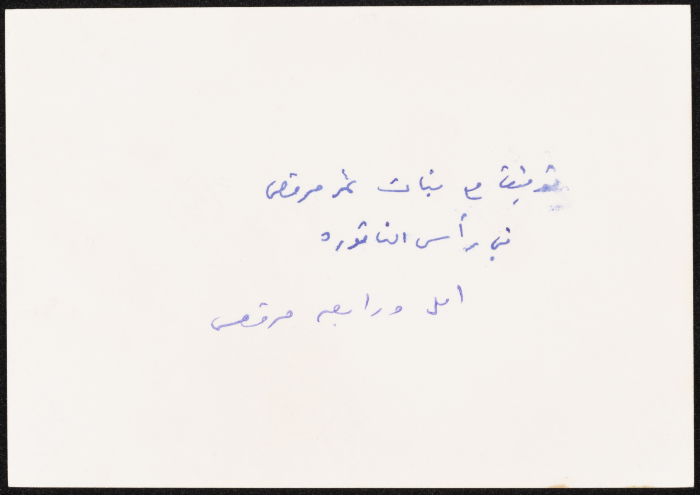 توفيقة مع بنات نمر مرقص
في رأس الناقوره
امل ورابعه مرقص